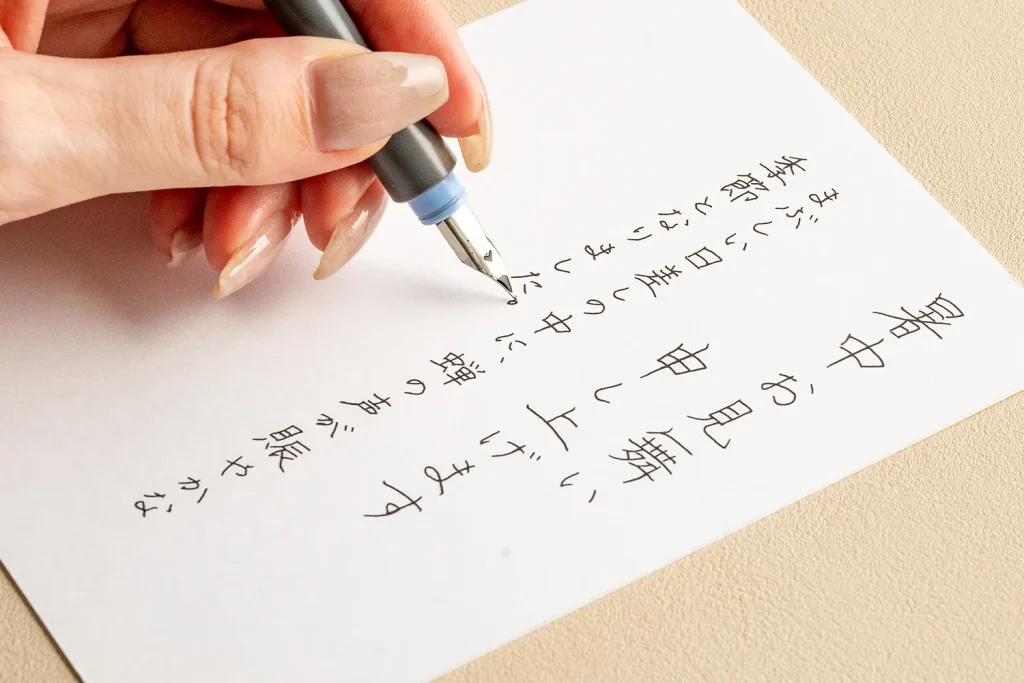 暑中お見舞い
申し上げます
まぶしい日差しの中に蝉の声が賑やかな
季節となりました。